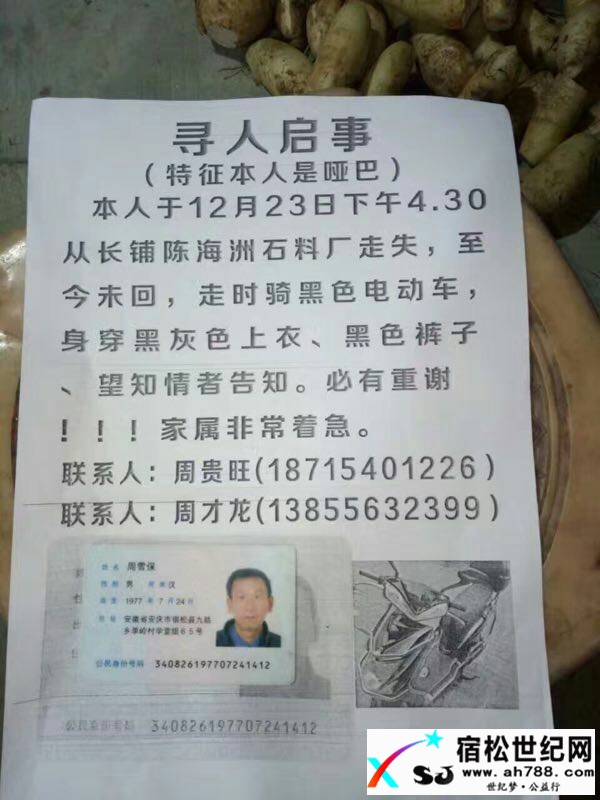 寻人启事
（特征本人是哑巴）
本人于12月23日下午4.30
从长铺陈海洲石料厂走失，至
今未回，走时骑黑色电动车，
身穿黑灰色上衣、黑色裤子
、望知情者告知。必有重谢
！！！家属非常着急。
联系人：周贵旺(18715401226)
联系人：周才龙(13855632399)
姓名 周雪保
性别 男 民族 汉
出生 1977 年 7 月 24 日
住址 安徽省安庆市宿松县九姑
乡季岭村学堂组65号
公民身份号码 340826197707241412
公民身份号码 340826197707241412
XSJ
宿松世纪网
www.ah788.com
世纪梦·公益行